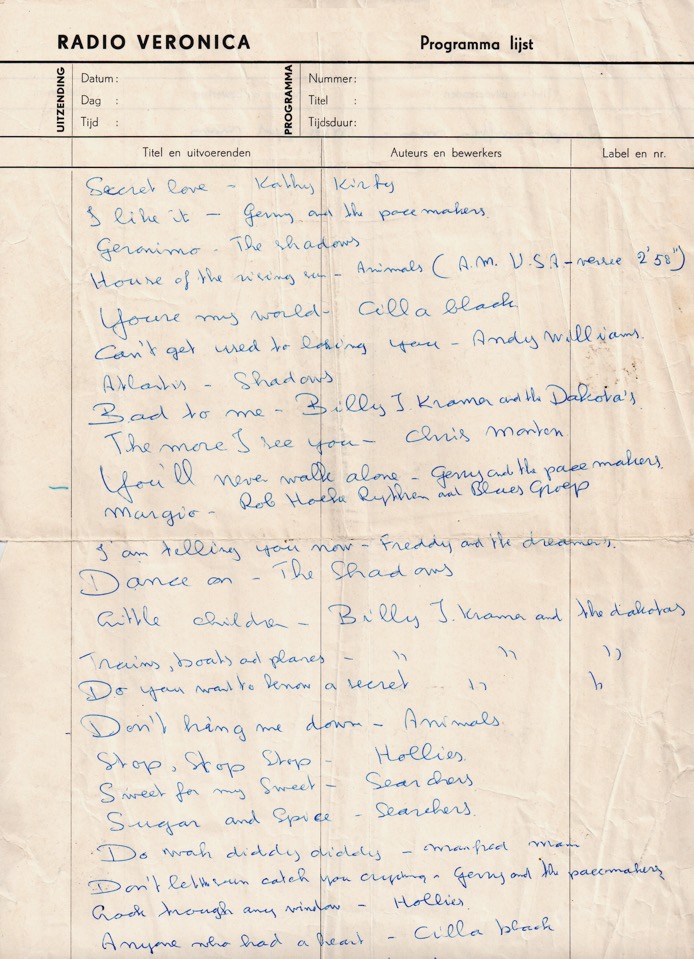 RADIO VERONICA
Programma lijst
UITZENDING
Datum:
Dag :
Tijd :
PROGRAMMA
Nummer:
Titel :
Tijdsduur:
Titel en uitvoerenden
Auteurs en bewerkers
Label en nr.
Secret love - Kathy Kirby
I like it - Gerry and the pacemakers
Geronimo - The shadows
House of the rising sun - Animals (A.M. U.S.A - versie 2'58")
Youre my world - Cilla black
Can't get used to losing you - Andy Williams.
Atlantis - Shadows
Bad to me - Billy J. Kramer and the Dakota's
The more I see you - Chris Monten
You'll never walk alone - Gerry and the pacemakers.
Margio - Rob Hoeke Rythm and Blues Groep
I am telling you now - Freddy and the dreamers.
Dance on - The Shadows
Little children - Billy J. Kramer and the dakotas
Trains, boats ad planes - " " "
Do you want to know a secret " "
Don't bring me down - Animals.
Stop, Stop Stop - Hollies.
Sweet for my Sweet - Searchers
Sugar and Spice - Searchers.
Do wah diddy diddy - manfred man
Don't let the sun catch you crying - Gerry and the pacemakers
Look trough any window - Hollies.
Anyone who had a heart - Cilla black